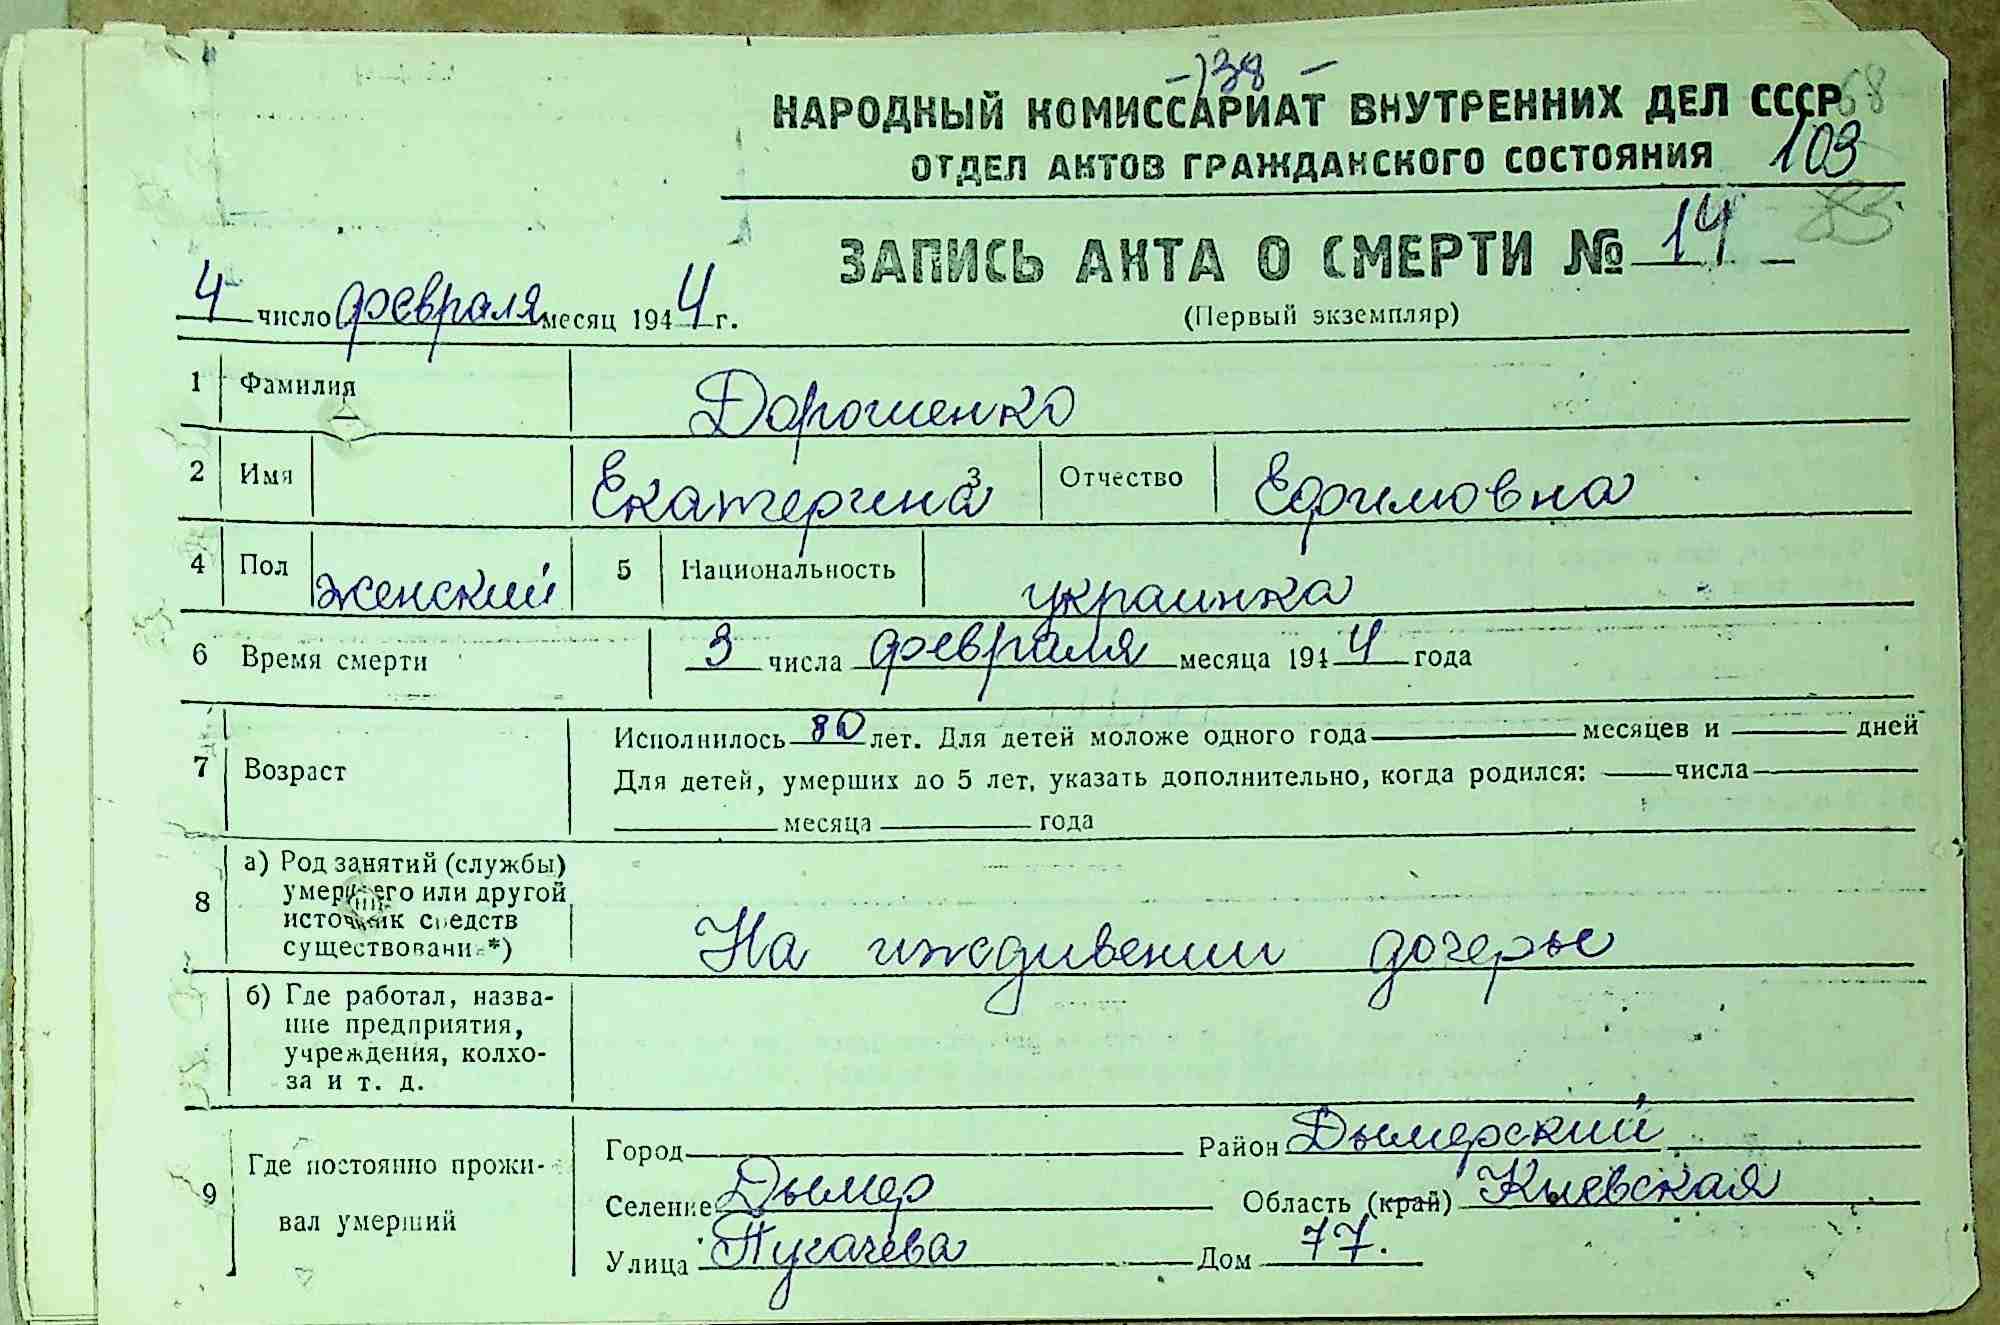 - 138 -
НАРОДНЫЙ КОМИССАРИАТ ВНУТРЕННИХ ДЕЛ СССР 68
ОТДЕЛ АКТОВ ГРАЖДАНСКОГО СОСТОЯНИЯ 103
ЗАПИСЬ АКТА О СМЕРТИ № 14
4 число февраля месяц 1944 г.
(Первый экземпляр)
1 Фамилия Дорошенко
2 Имя Екатерина 3 Отчество Ефимовна
4 Пол женский 5 Национальность украинка
6 Время смерти 3 числа февраля месяца 1944 года
7 Возраст Исполнилось 80 лет. Для детей моложе одного года месяцев и дней
Для детей, умерших до 5 лет, указать дополнительно, когда родился: числа
месяца года
8 а) Род занятий (службы)
умершего или другой
источник средств
существовани*)
На иждивении дочери
б) Где работал, назва-
ние предприятия,
учреждения, колхо-
за и т. д.
9 Где постоянно прожи-
вал умерший
Город Район Дымерский
Селение Дымер Область (край) Киевская
Улица Пугачева Дом 77.